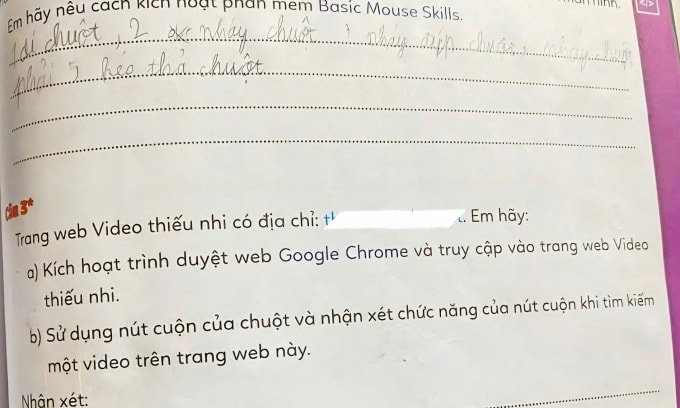 Em hãy nêu cách kích hoạt phần mềm Basic Mouse Skills.
chuột, 2 nháy chuột 3 nháy đúp chuột, nháy chuột
phải 5 kéo thả chuột
Câu 3*
Trang web Video thiếu nhi có địa chỉ: Em hãy:
a) Kích hoạt trình duyệt web Google Chrome và truy cập vào trang web Video
thiếu nhi.
b) Sử dụng nút cuộn của chuột và nhận xét chức năng của nút cuộn khi tìm kiếm
một video trên trang web này.
Nhận xét: